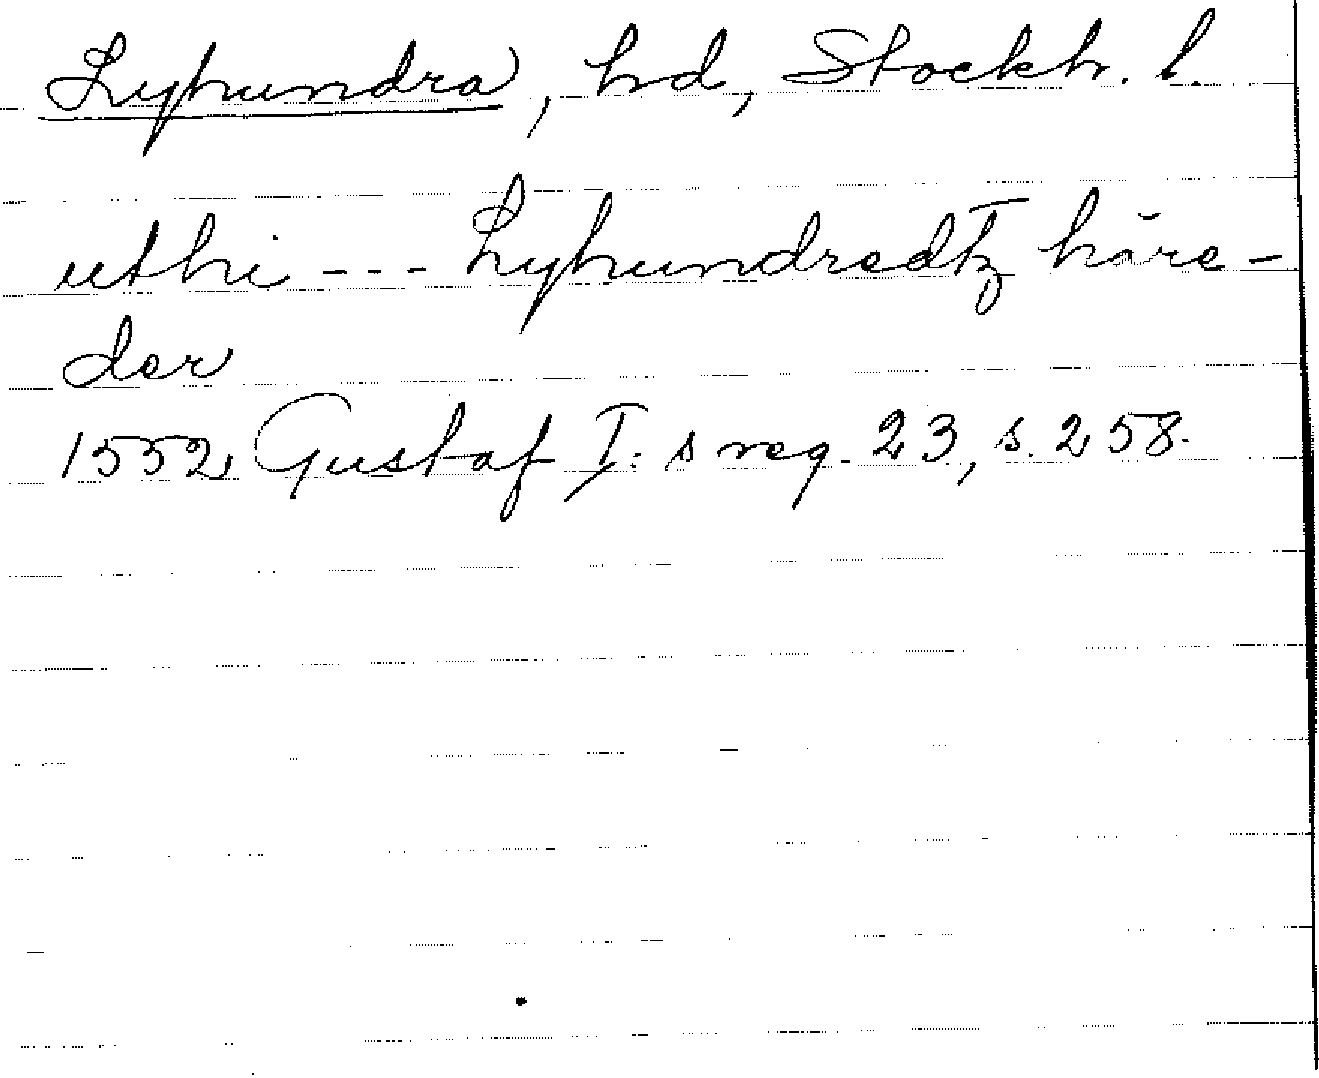 Lyhundra, hd, Stockh. l.
uthi --- Lyhundredtz häre-
der
1552 Gustaf I:s reg. 23, s. 258.